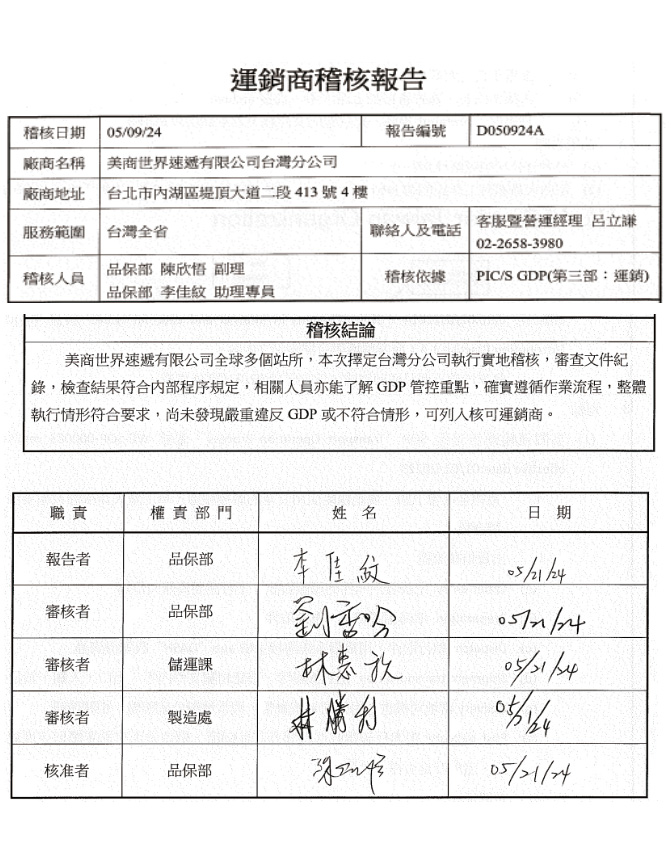 運銷商稽核報告
稽核日期 05/09/24 報告編號 D050924A
廠商名稱 美商世界速遞有限公司台灣分公司
廠商地址 台北市內湖區堤頂大道二段 413 號 4 樓
服務範圍 台灣全省 聯絡人及電話 客服暨營運經理 呂立謙
02-2658-3980
稽核人員 品保部 陳欣悟 副理 稽核依據 PIC/S GDP(第三部：運銷)
品保部 李佳紋 助理專員
稽核結論
美商世界速遞有限公司全球多個站所，本次擇定台灣分公司執行實地稽核，審查文件紀
錄，檢查結果符合內部程序規定，相關人員亦能了解 GDP 管控重點，確實遵循作業流程，整體
執行情形符合要求，尚未發現嚴重違反 GDP 或不符合情形，可列入核可運銷商。
職責 權責部門 姓名 日期
報告者 品保部 李佳紋 05/21/24
審核者 品保部 05/21/24
審核者 儲運課 05/21/24
審核者 製造處 林勝利 05/21/24
核准者 品保部 05/21/24